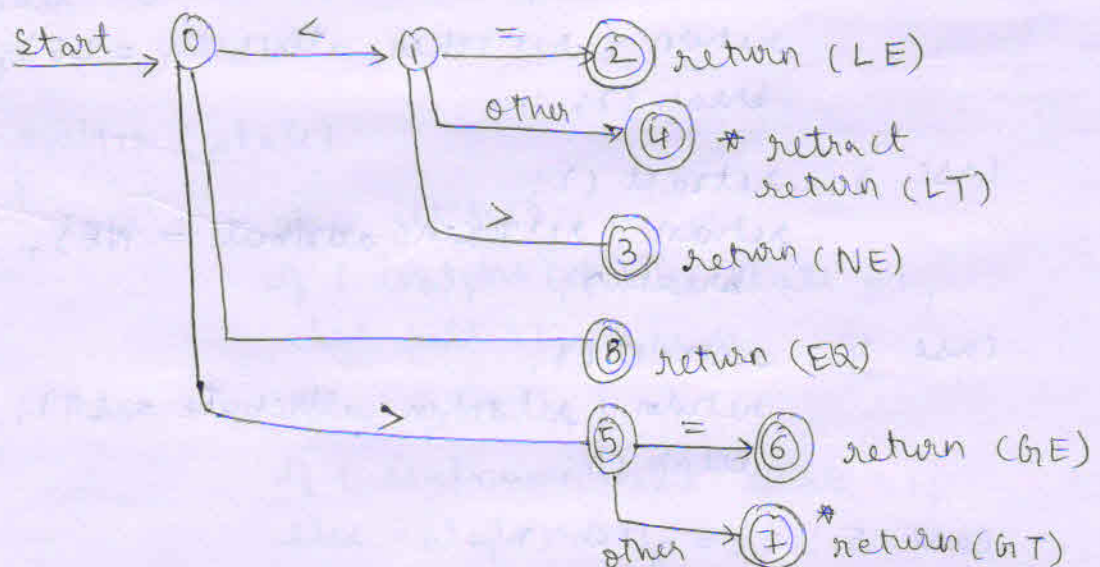 Start 0 < 1 = 2 return (LE)
other 4 * retract
return (LT)
> 3 return (NE)
8 return (EQ)
> 5 = 6 return (GE)
other 7 * return (GT)